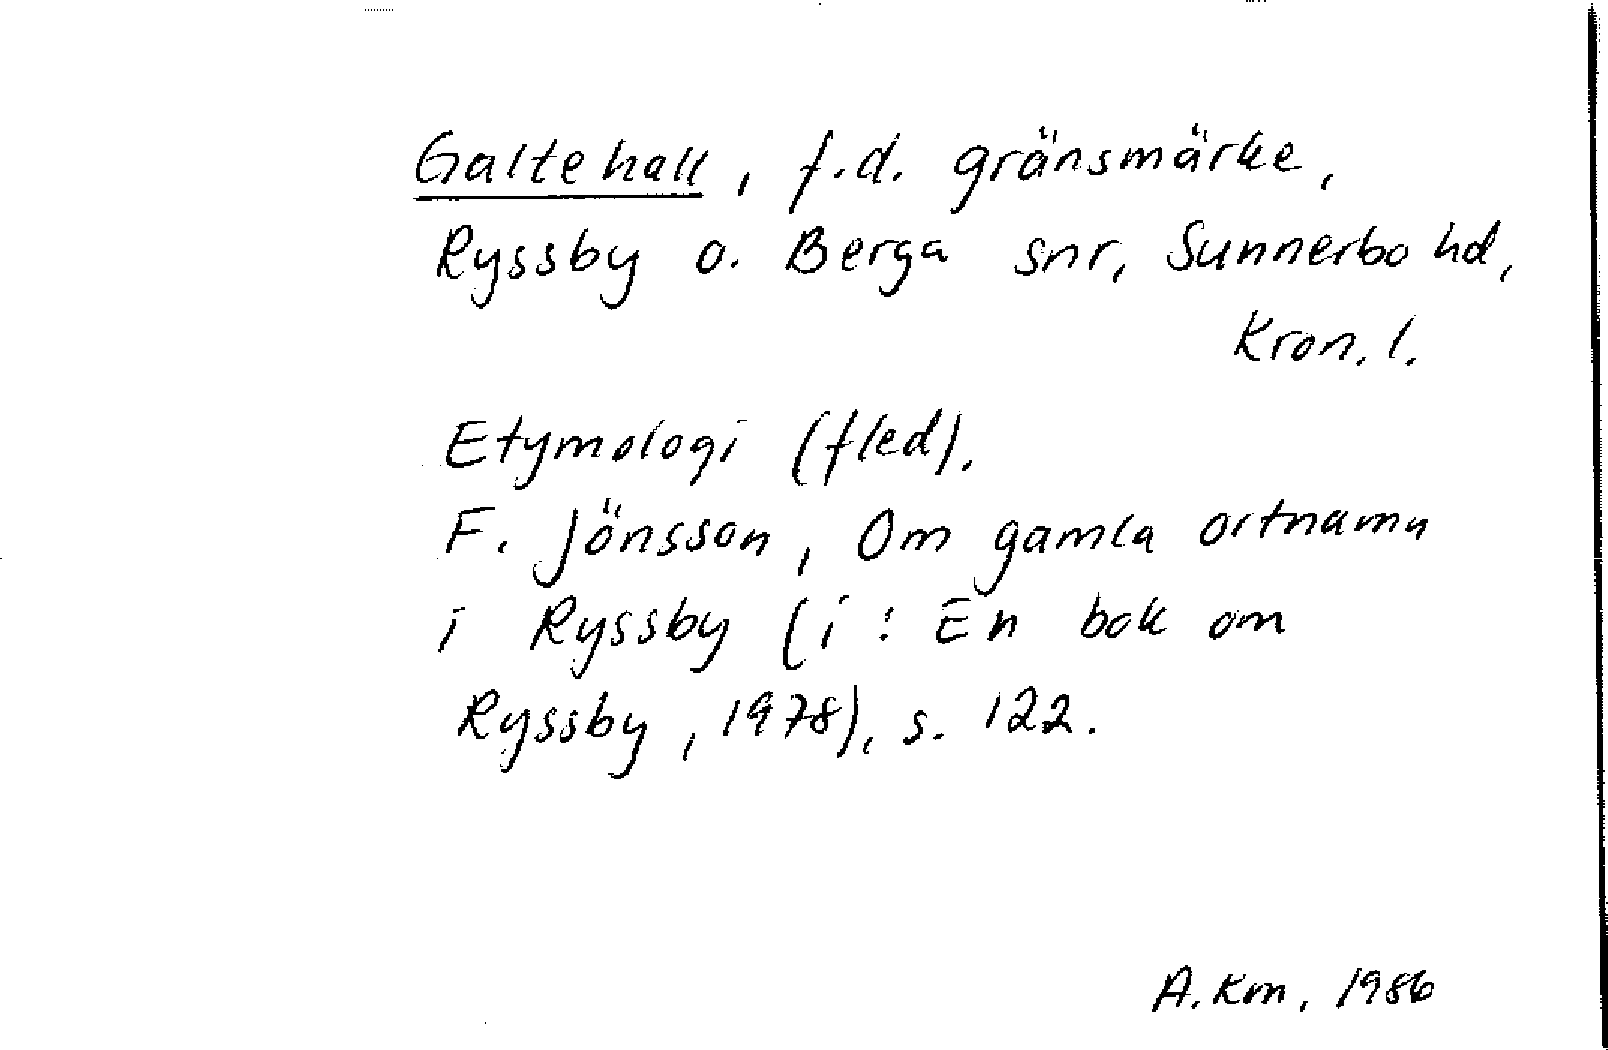 Galtehall, f.d. gränsmärke,
Ryssby o. Berga snr, Sunnerbo hd,
Kron. l.
Etymologi (fled).
F. Jönsson, Om gamla ortnamn
i Ryssby (i: En bok om
Ryssby, 1978), s. 122.
A. Km, 1986